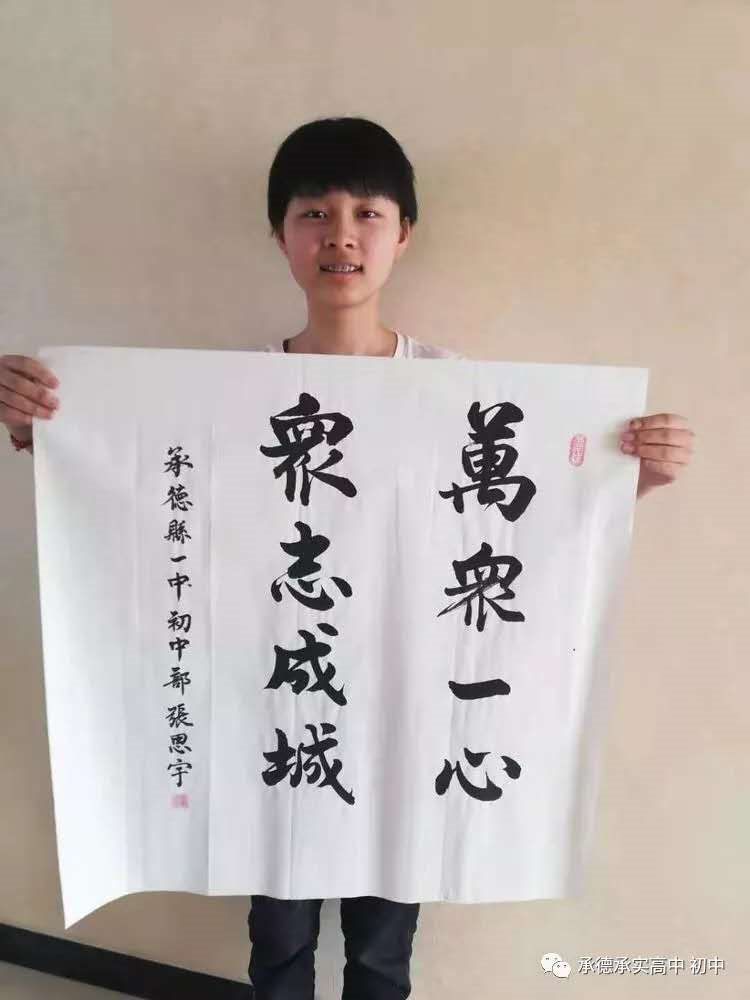 萬眾一心
眾志成城
承德縣一中初中部張思宇
承德承实高中 初中